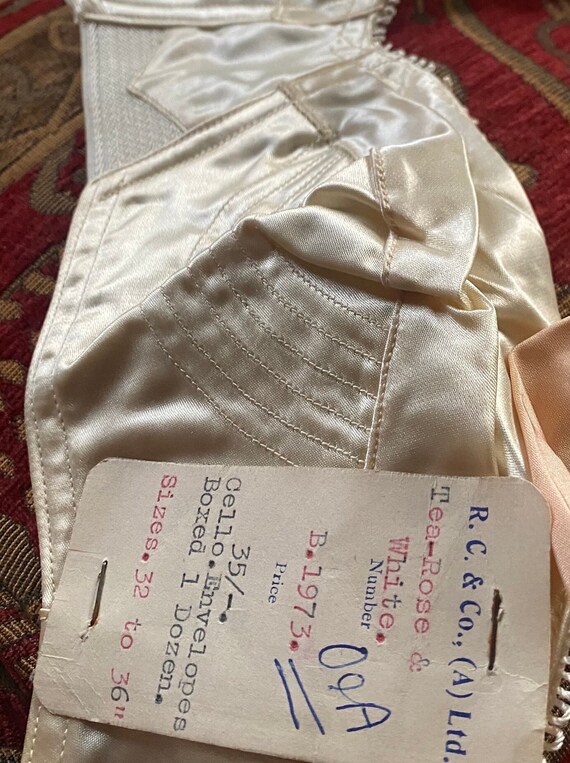 R. C. & Co., (A) Ltd.
Tea-Rose &
White.
Number
B.1973.
OgA
Price
35/-.
Cello.Envelopes
Boxed 1 Dozen.
Sizes.32 to 36"